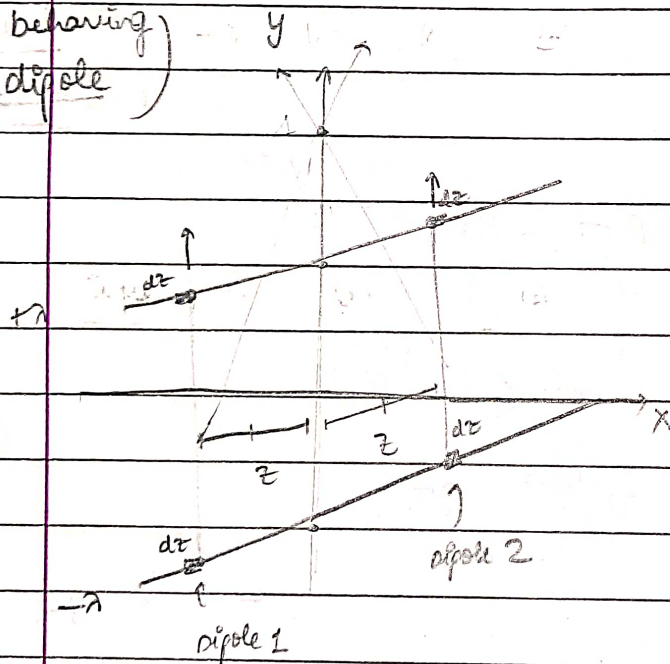 behaving
dipole
y
A
dz
dz
+λ
X
z
z
dz
dz
Dipole 2
-λ
Dipole 1